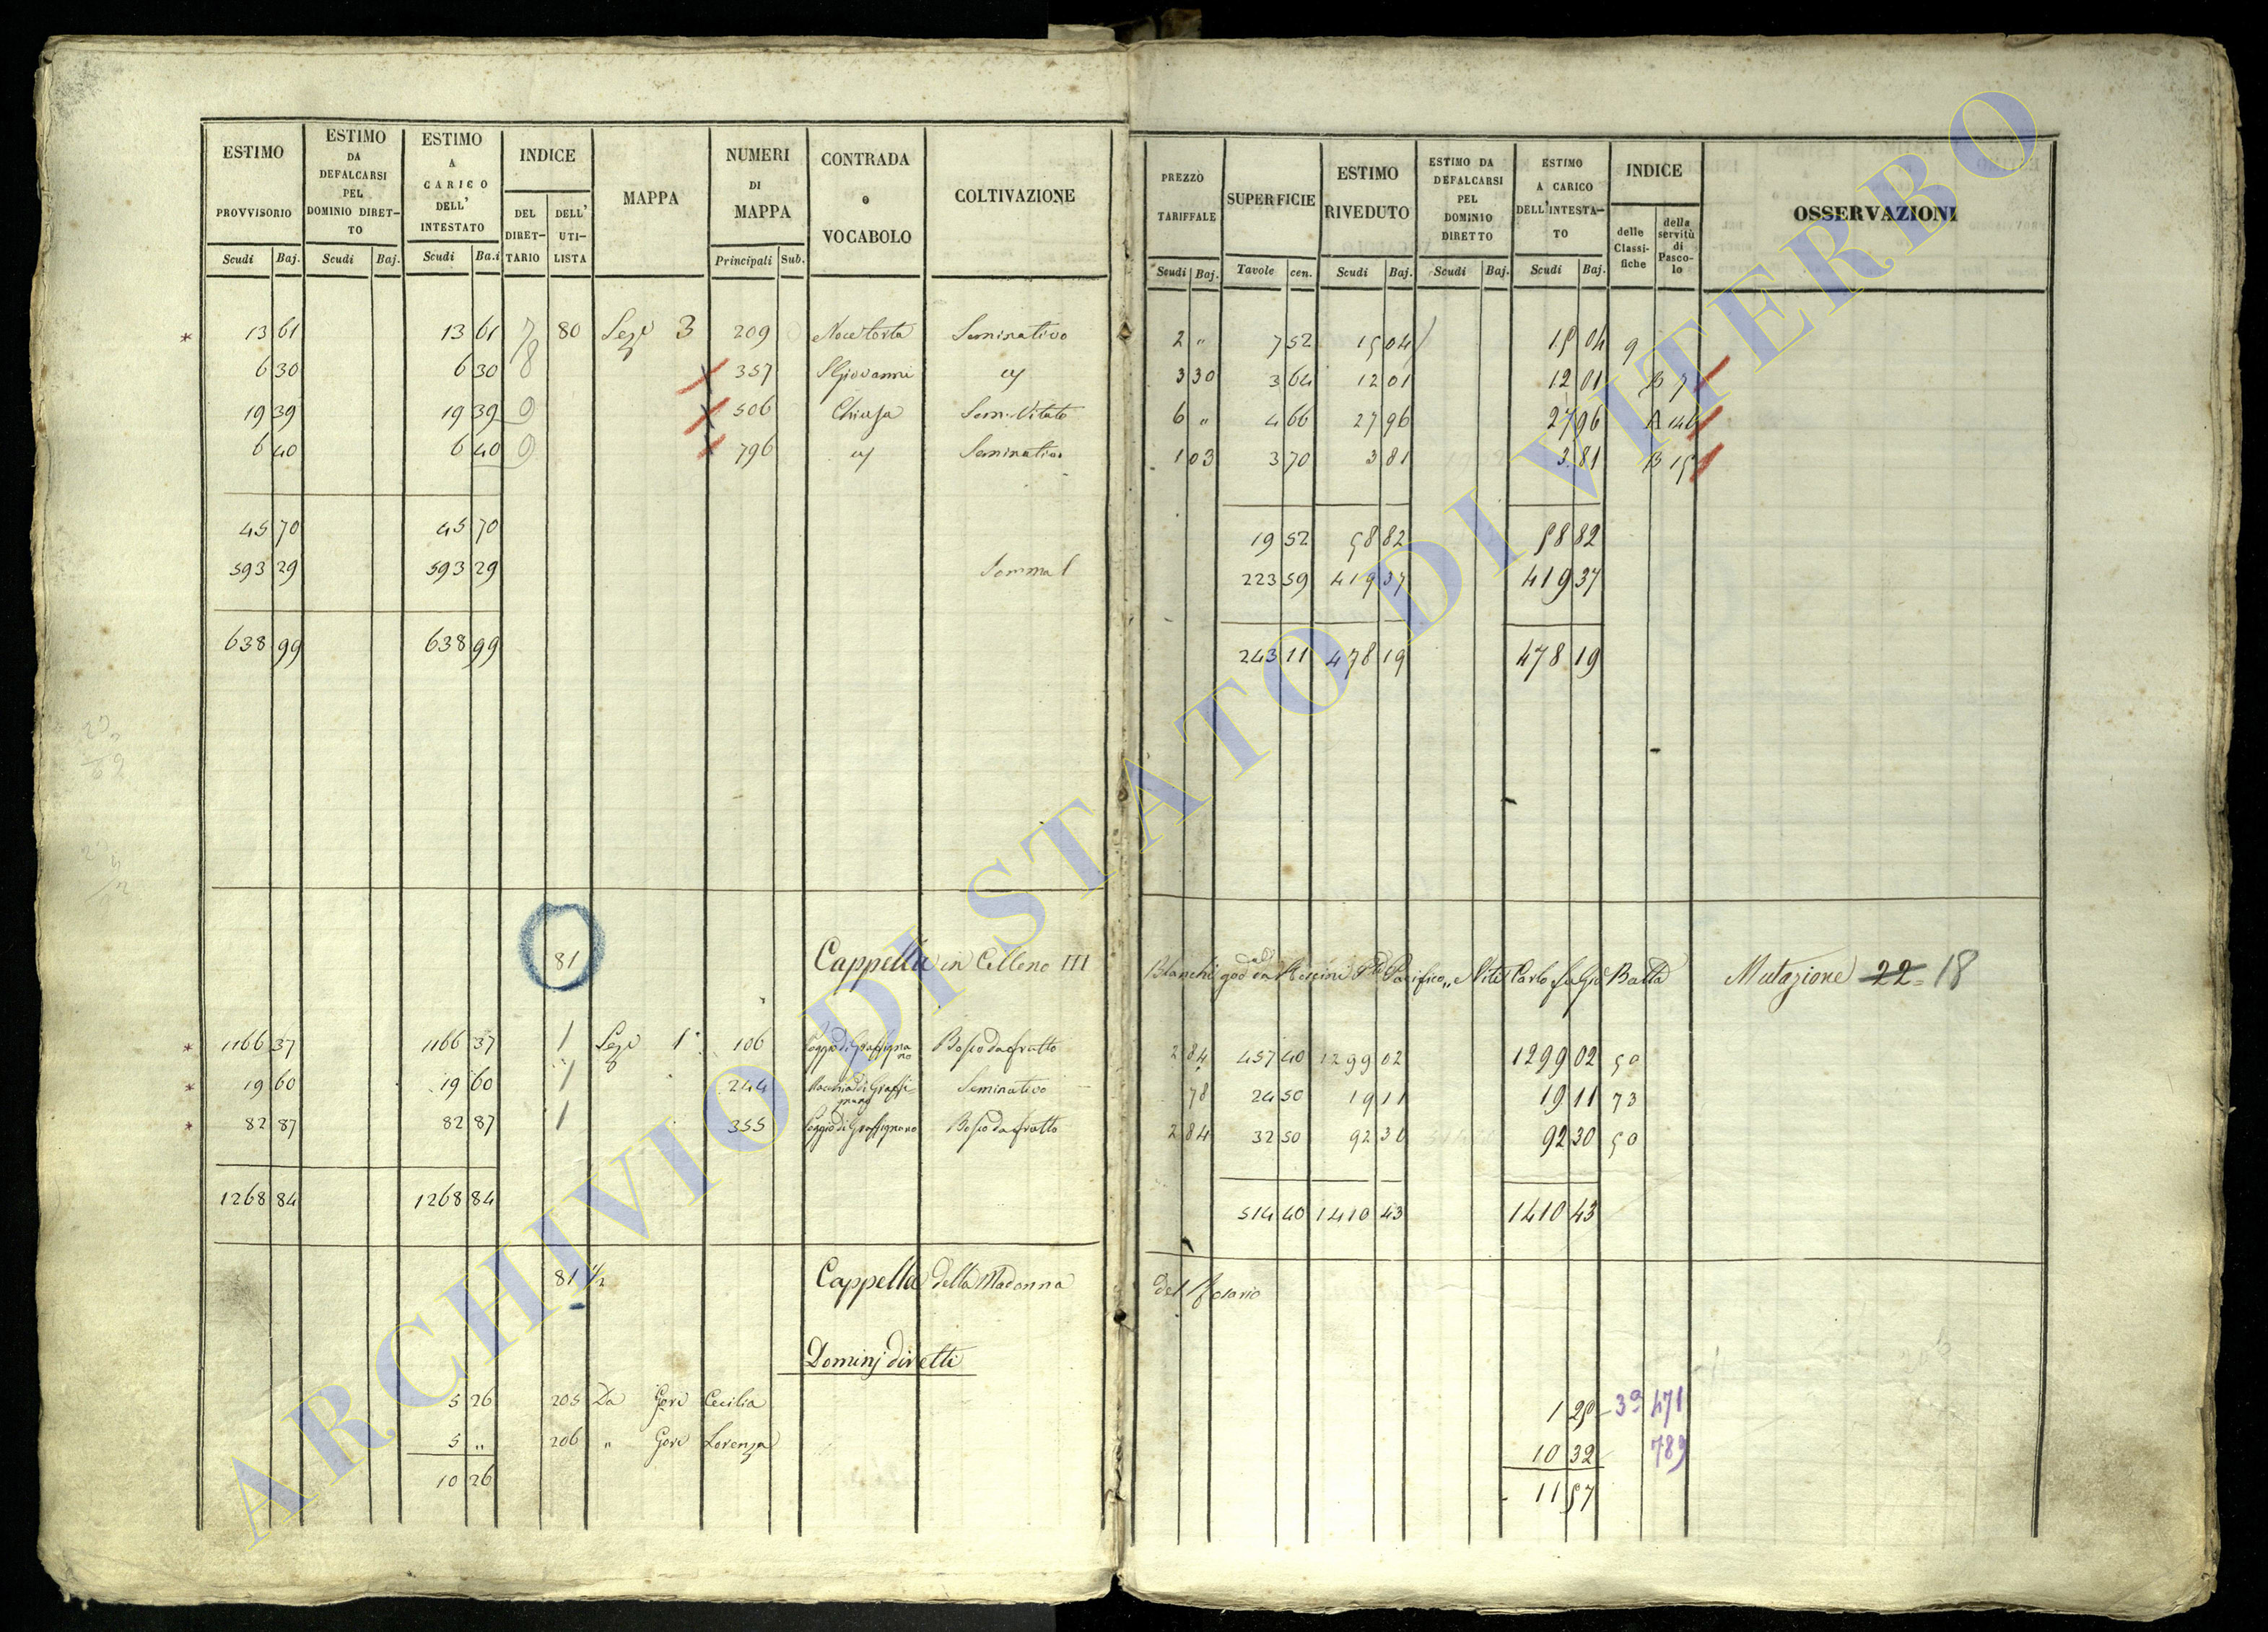 ESTIMO PROVVISORIO Scudi Baj.
ESTIMO DA DEFALCARSI PEL DOMINIO DIRET-TO Scudi Baj.
ESTIMO A CARICO DELL' INTESTATO Scudi Ba.i
INDICE DEL DIRET-TARIO DELL' UTI-LISTA
MAPPA
NUMERI DI MAPPA Principali Sub.
CONTRADA o VOCABOLO
COLTIVAZIONE
PREZZO TARIFFALE Scudi Baj.
SUPERFICIE Tavole cen.
ESTIMO RIVEDUTO Scudi Baj.
ESTIMO DA DEFALCARSI PEL DOMINIO DIRETTO Scudi Baj.
ESTIMO A CARICO DELL'INTESTA-TO Scudi Baj.
INDICE delle Classi-fiche della servitù di Pasco-lo
OSSERVAZIONI
13 61 13 61 7 80 Sez.e 3 209 Noce torta Seminativo 2 " 7 52 15 04 15 04 9
6 30 6 30 8 357 S Giovanni 3 30 3 64 12 01 12 01 B 7
19 39 19 39 9 506 Chiusa Sem. Vitato 6 " 4 66 27 96 27 96
6 40 6 40 9 796 Seminativo 1 03 3 70 3 81 3 81 B 15
45 70 45 70 19 52 58 82 58 82
593 29 593 29 Somma 223 59 419 37 419 37
638 99 638 99 243 11 478 19 478 19
81 Cappella in Celleno III Bianchi god Pacifico Carlo Batta Mutazione 22 = 18
1166 37 1166 37 1 Sez.e 1 106 Poggio di Graffignano Bosco da frutto 2 84 457 40 1299 02 1299 02 50
19 60 19 60 1 244 Macchia di Graffignano Seminativo 78 24 50 19 11 19 11 73
82 87 82 87 1 355 Poggio di Graffignano Bosco da frutto 2 84 32 50 92 30 92 30 50
1268 84 1268 84 514 40 1410 43 1410 43
81 1/2 Cappella della Madonna del Rosario
Dominj diretti
5 26 205 Da Gori Cecilia 1 25 39 471
5 " 206 " Gori Lorenza 10 32 789
10 26 11 57
ARCHIVIO DI STATO DI VITERBO